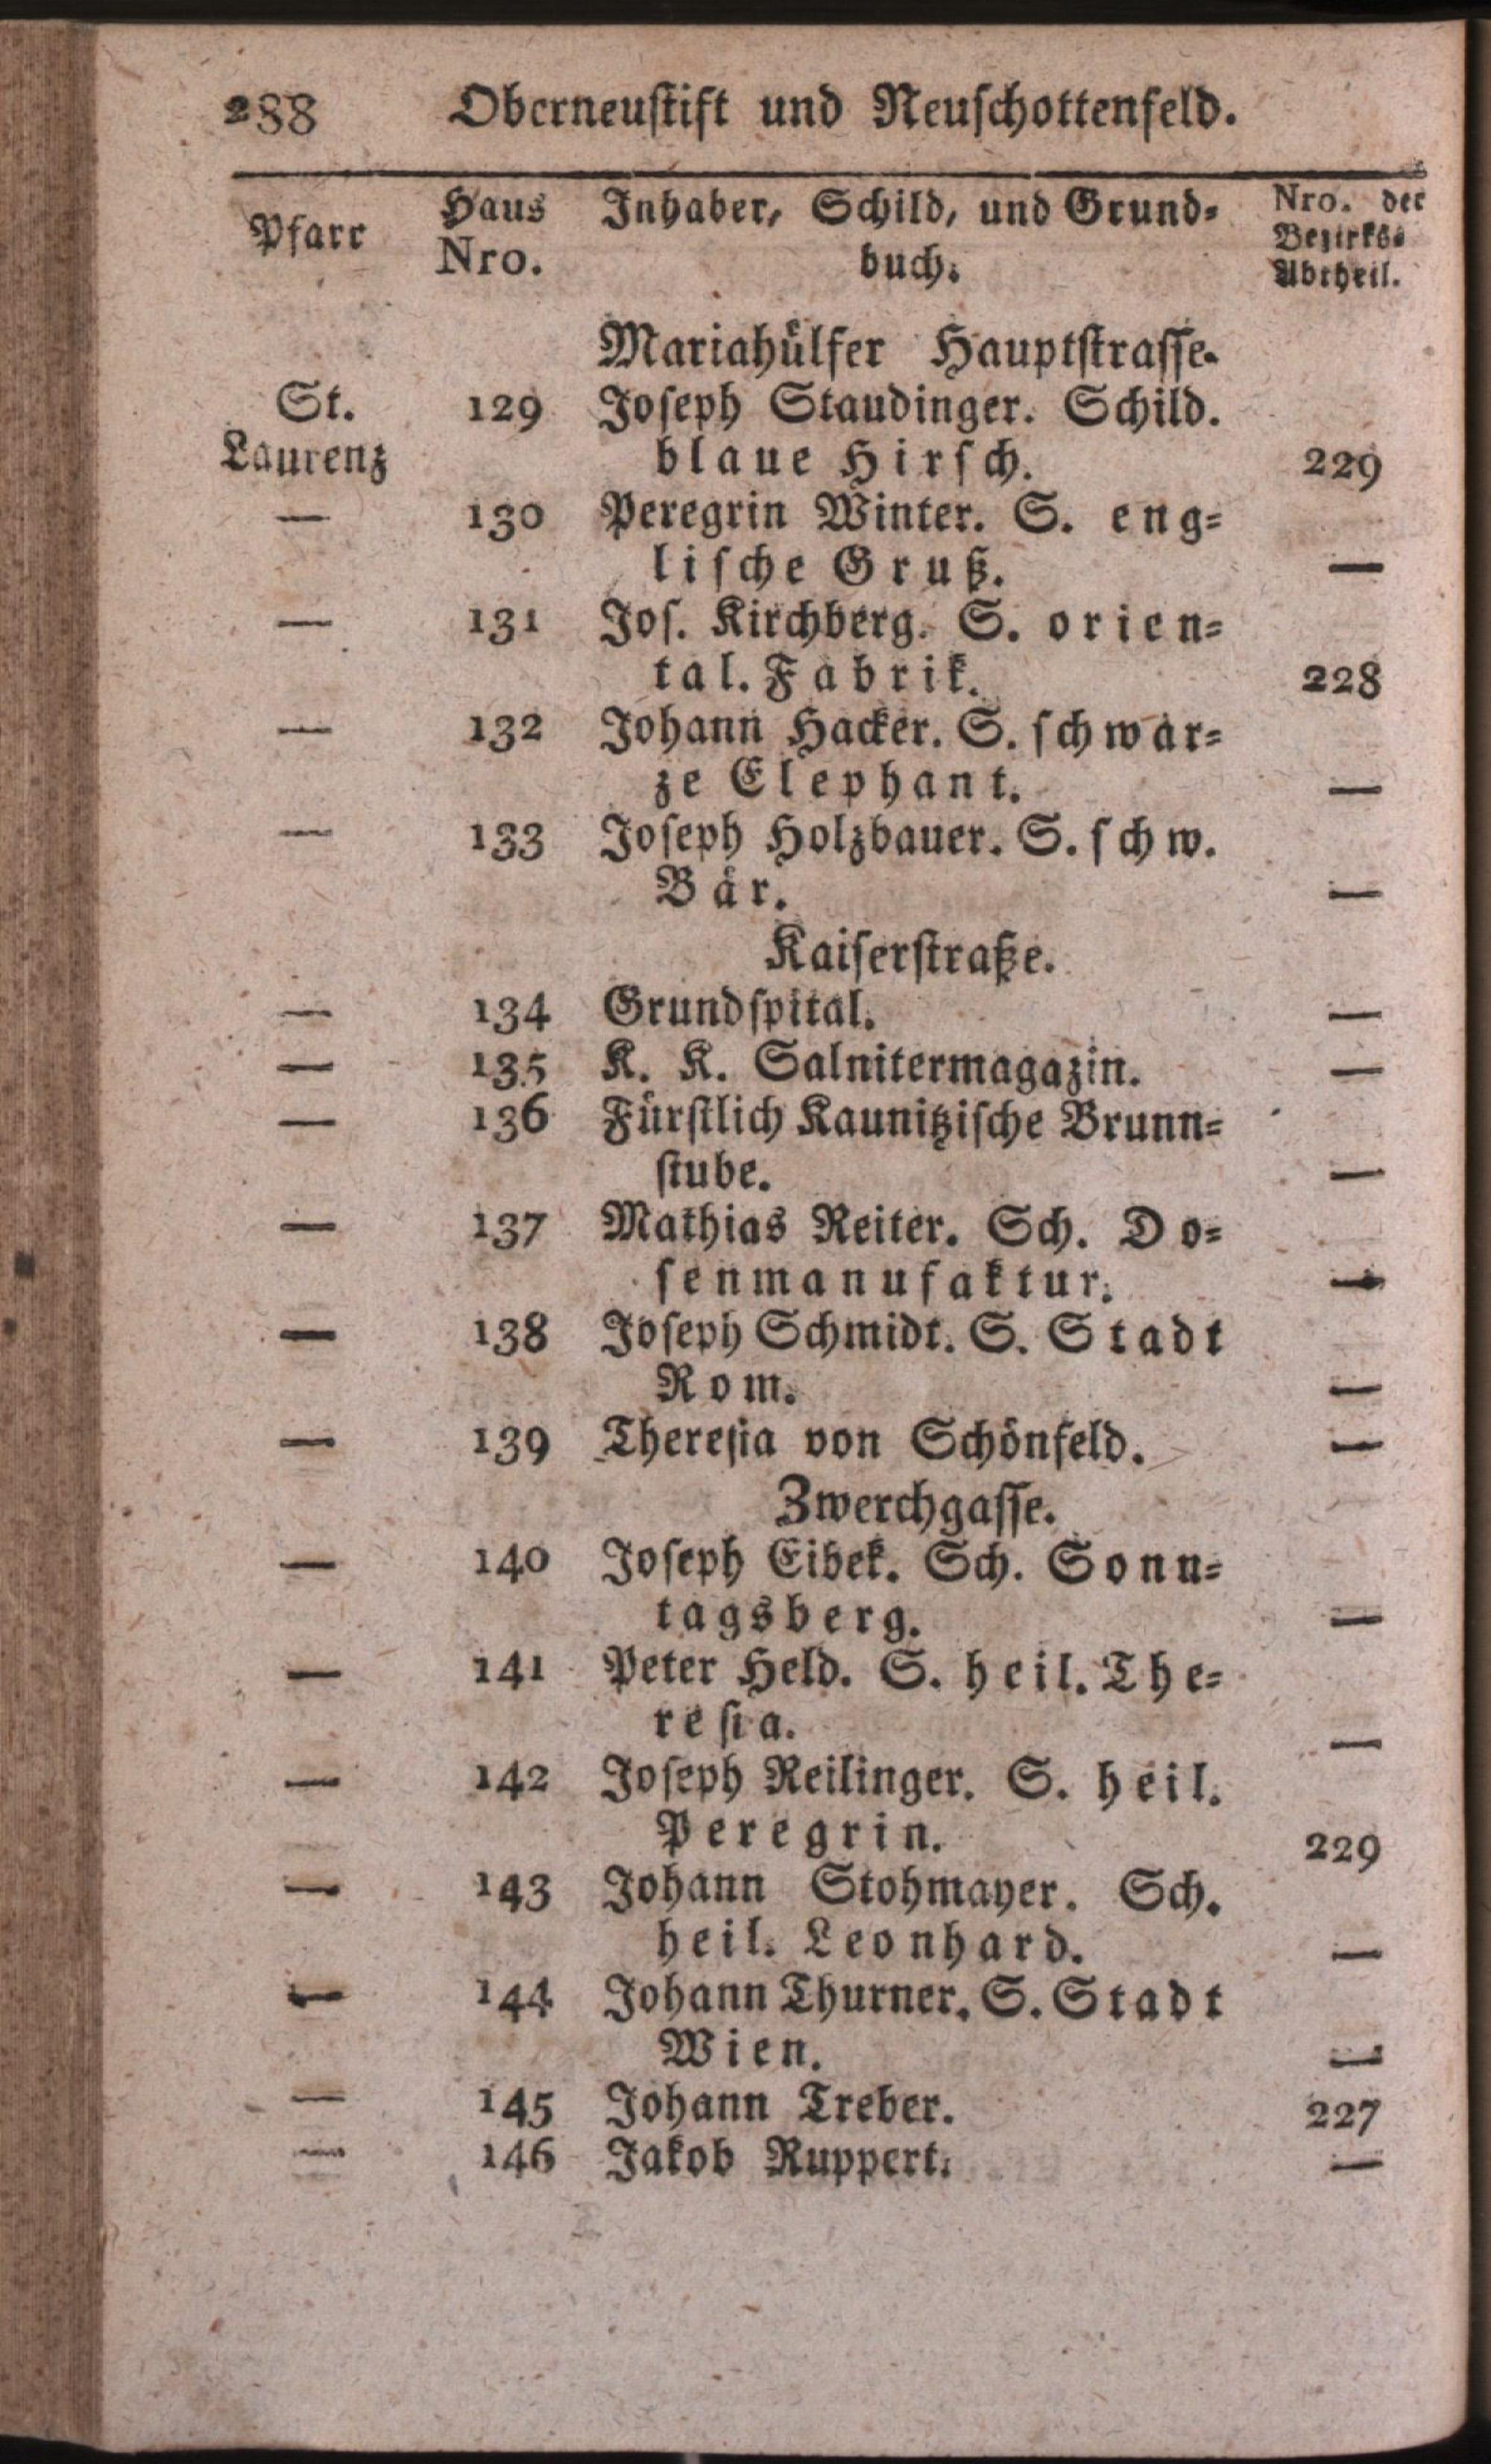 288 Oberneustift und Neuschottenfeld.
Pfarr Haus Nro. Inhaber, Schild, und Grund-buch. Nro. der Bezirks-Abtheil.
Mariahülfer Hauptstrasse.
St. 129 Joseph Staudinger. Schild.
Laurenz blaue Hirsch. 229
— 130 Peregrin Winter. S. eng-
lische Gruß. —
— 131 Jos. Kirchberg. S. orien-
tal. Fabrik. 228
— 132 Johann Hacker. S. schwar-
ze Elephant. —
— 133 Joseph Holzbauer. S. schw.
Bär. —
Kaiserstraße.
— 134 Grundspital. —
— 135 K. K. Salnitermagazin. —
— 136 Fürstlich Kaunitzische Brunn-
stube. —
— 137 Mathias Reiter. Sch. Do-
senmanufaktur. —
— 138 Joseph Schmidt. S. Stadt
Rom. —
— 139 Theresia von Schönfeld. —
Zwerchgasse.
— 140 Joseph Eibek. Sch. Sonn-
tagsberg. —
— 141 Peter Held. S. heil. The-
resia. —
— 142 Joseph Reilinger. S. heil.
Peregrin. 229
— 143 Johann Stohmayer. Sch.
heil. Leonhard. —
— 144 Johann Thurner. S. Stadt
Wien. —
— 145 Johann Treber. 227
— 146 Jakob Ruppert. —